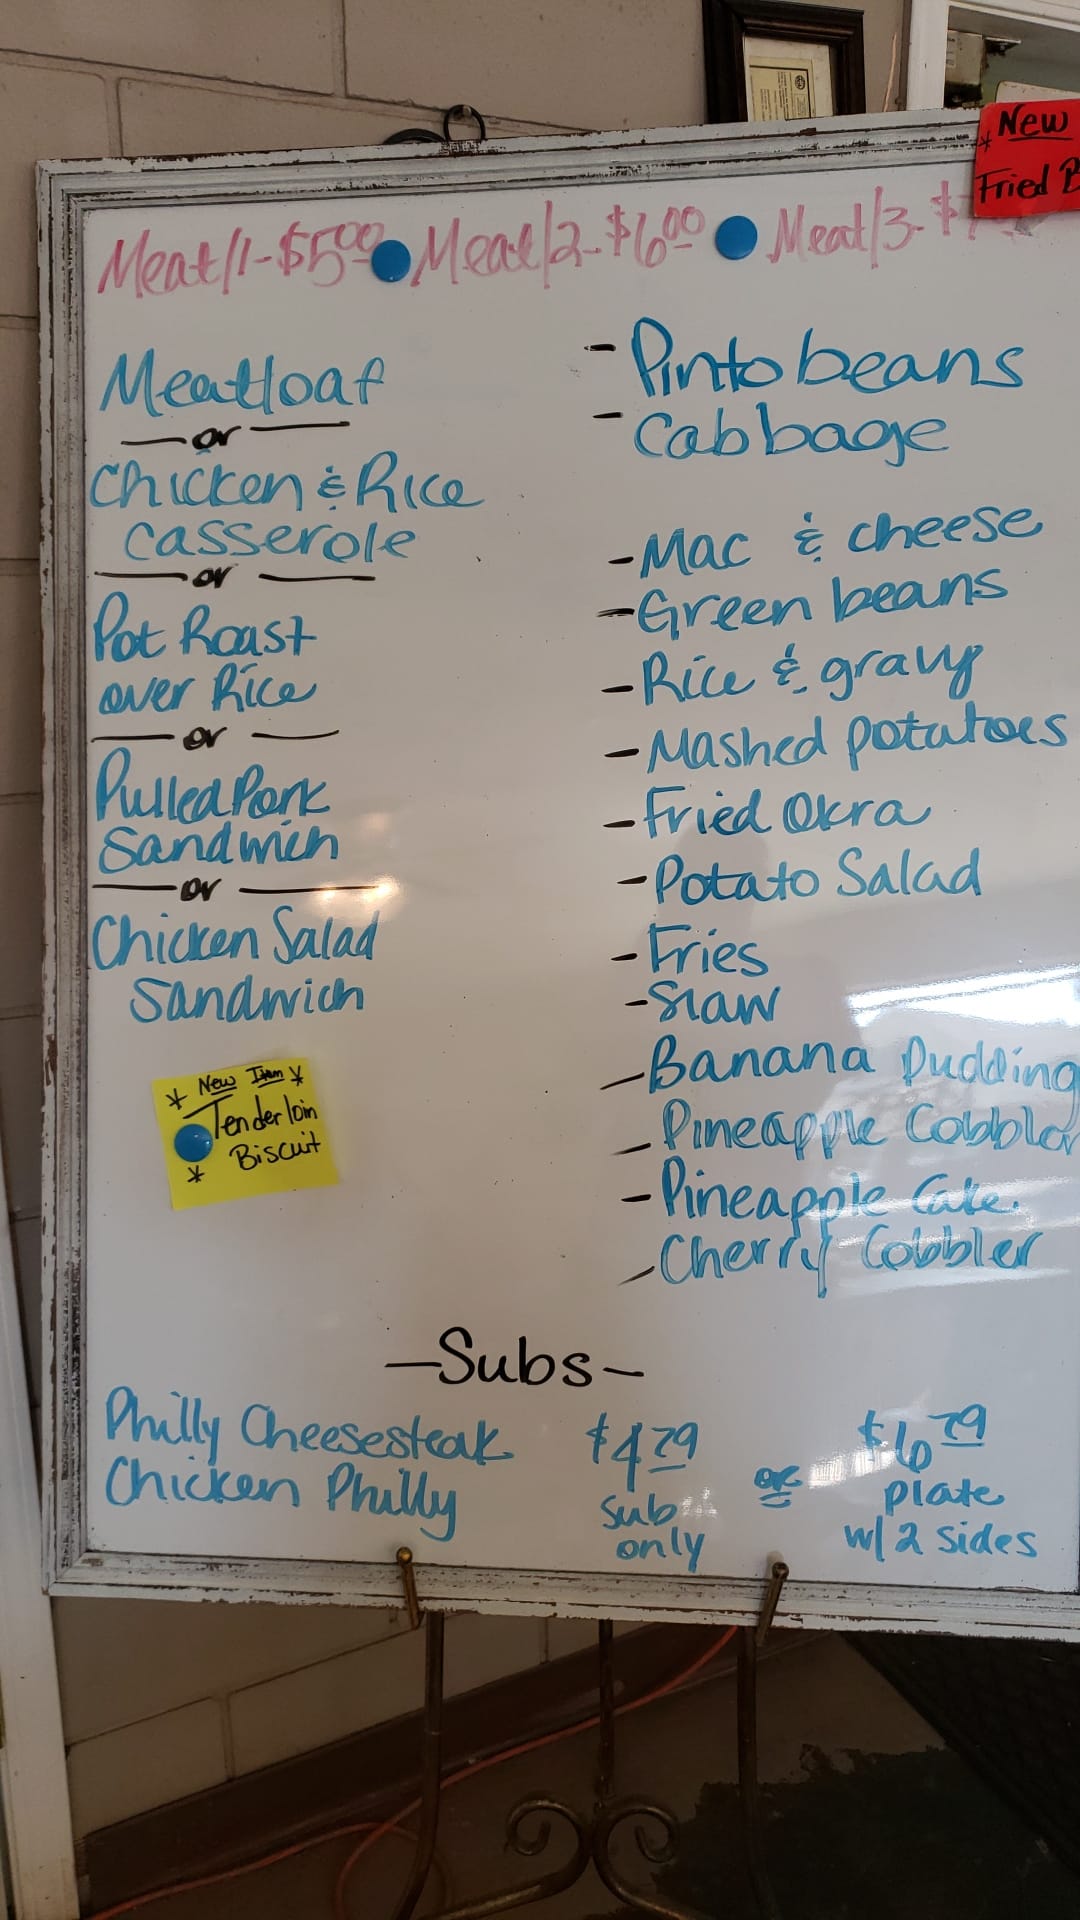 * New
Fried B
Meat/1-$5.00 Meat/2-$6.00 Meat/3-$7
Meatloaf
or
Chicken & Rice
Casserole
or
Pot Roast
over Rice
or
Pulled Pork
Sandwich
or
Chicken Salad
Sandwich
* New Item *
Tenderloin
Biscuit
*
- Pinto beans
- Cabbage
- Mac & cheese
- Green beans
- Rice & gravy
- Mashed potatoes
- Fried Okra
- Potato Salad
- Fries
- Slaw
- Banana Pudding
- Pineapple Cobbler
- Pineapple Cake
- Cherry Cobbler
- Subs -
Philly Cheesesteak
Chicken Philly
$4.79
sub
only
or
$6.79
plate
w/2 sides